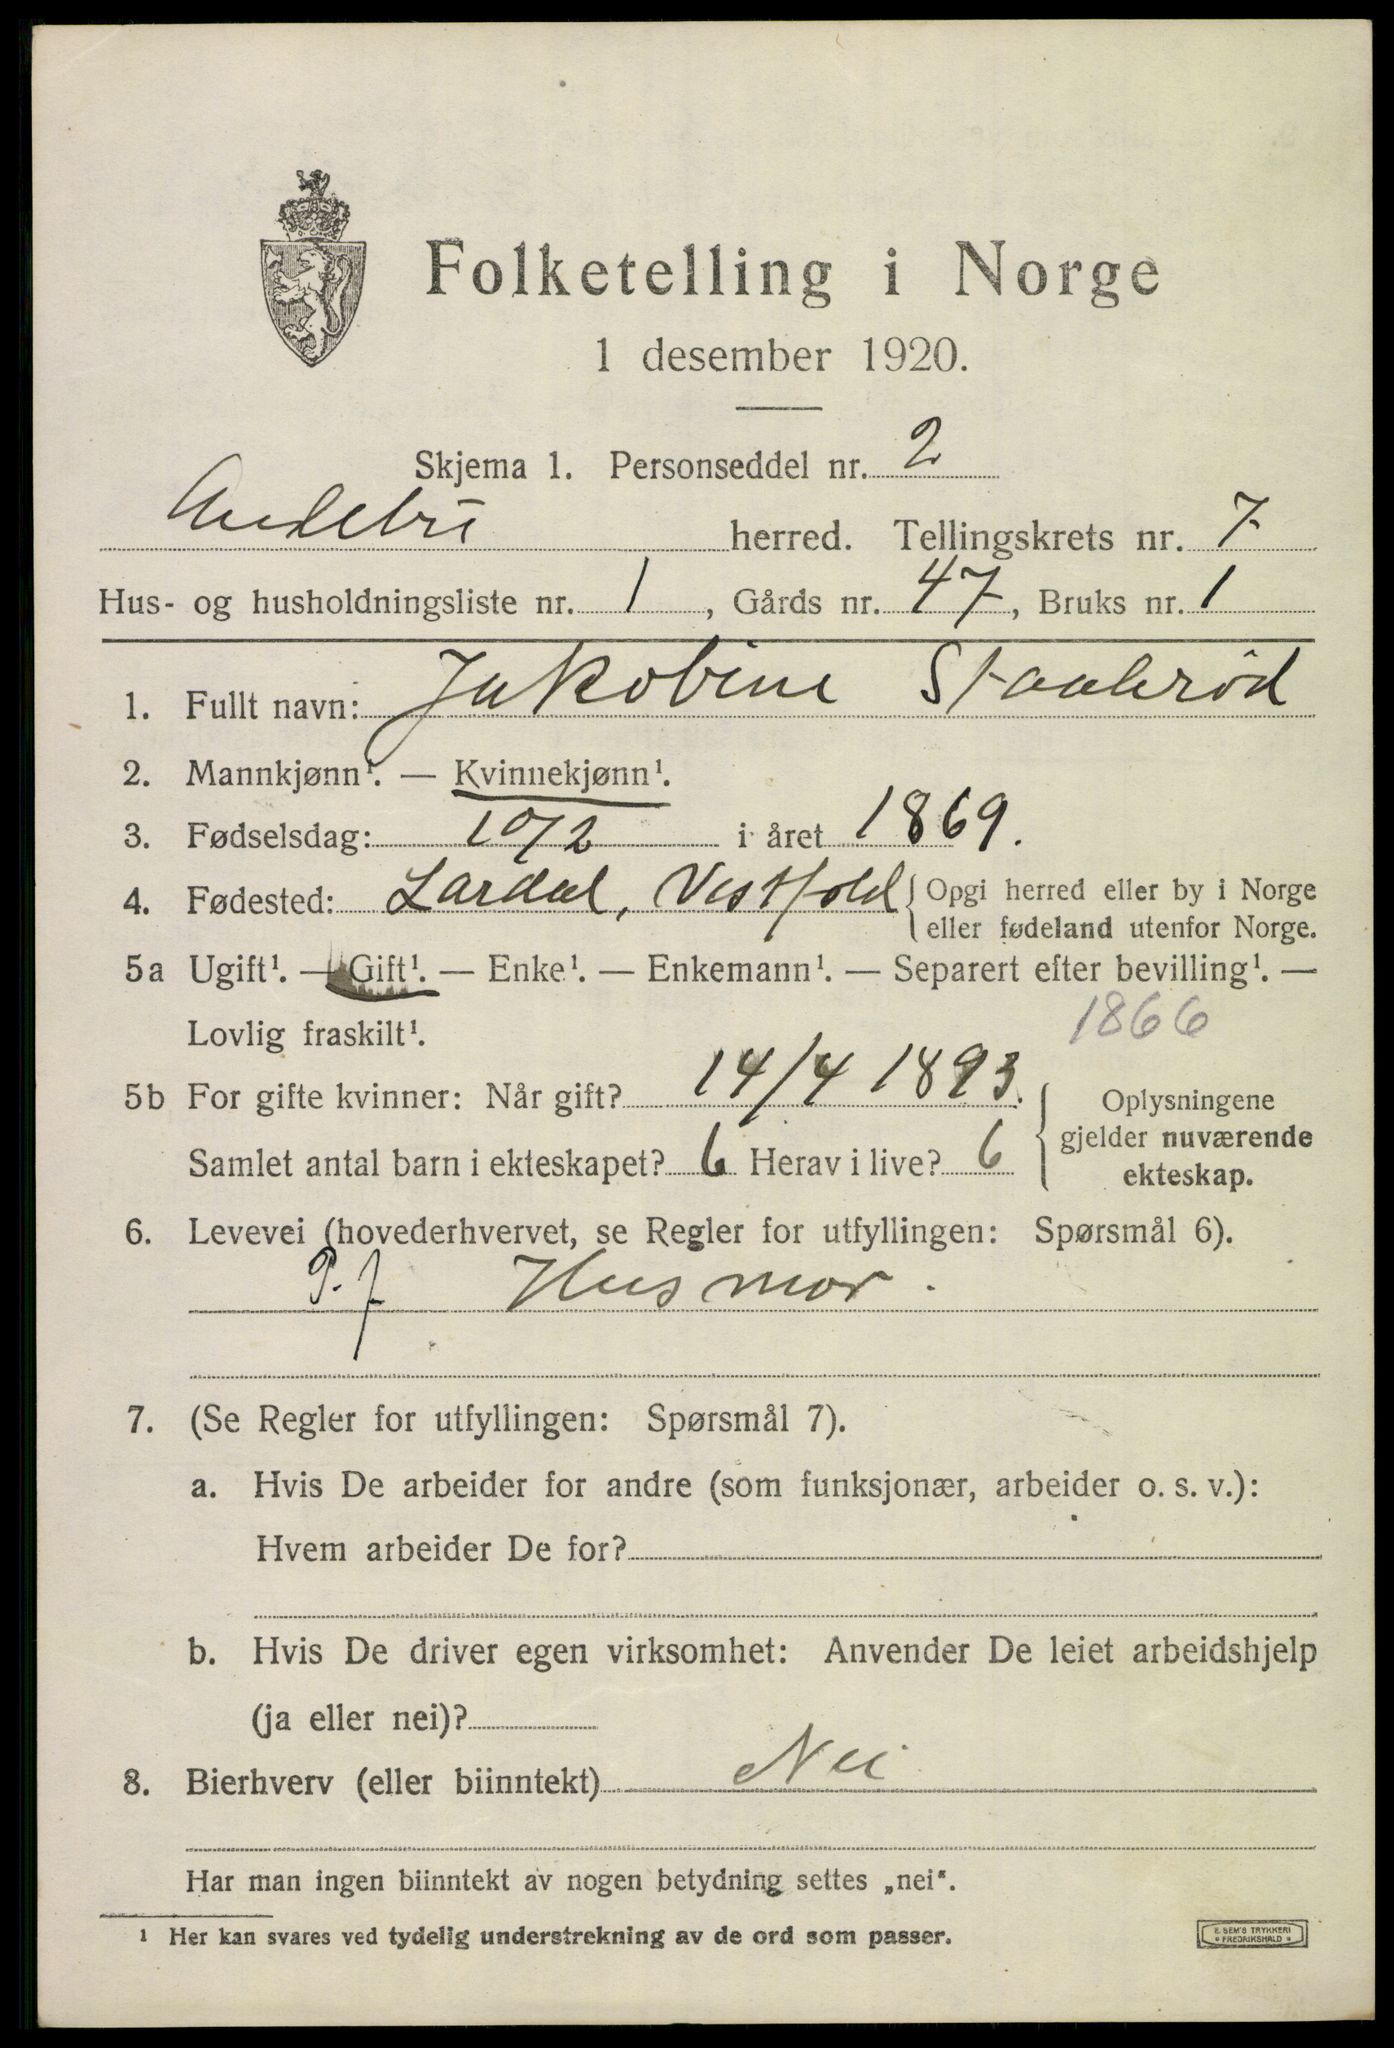 Folketelling i Norge
1 desember 1920.
Skjema 1. Personseddel nr. 2
Andebu herred. Tellingskrets nr. 7
Hus- og husholdningsliste nr. 1, Gårds nr. 47, Bruks nr. 1
1. Fullt navn: Jakobine Staalerød
2. Mannkjønn¹. — Kvinnekjønn¹.
3. Fødselsdag: 10/2 i året 1869.
4. Fødested: Lardal, Vestfold { Opgi herred eller by i Norge
eller fødeland utenfor Norge.
5a Ugift¹. — Gift¹. — Enke¹. — Enkemann¹. — Separert efter bevilling¹. —
Lovlig fraskilt¹. 1866
5b For gifte kvinner: Når gift? 14/4 1893. { Oplysningene
gjelder nuværende
Samlet antal barn i ekteskapet? 6 Herav i live? 6
ekteskap.
6. Levevei (hovederhvervet, se Regler for utfyllingen: Spørsmål 6).
P. f Husmor.
7. (Se Regler for utfyllingen: Spørsmål 7).
a. Hvis De arbeider for andre (som funksjonær, arbeider o. s. v.):
Hvem arbeider De for?
b. Hvis De driver egen virksomhet: Anvender De leiet arbeidshjelp
(ja eller nei)?
8. Bierhverv (eller biinntekt) Nei
Har man ingen biinntekt av nogen betydning settes „nei“.
¹ Her kan svares ved tydelig understrekning av de ord som passer.
E. SEM'S TRYKKERI
FREDRIKSHALD